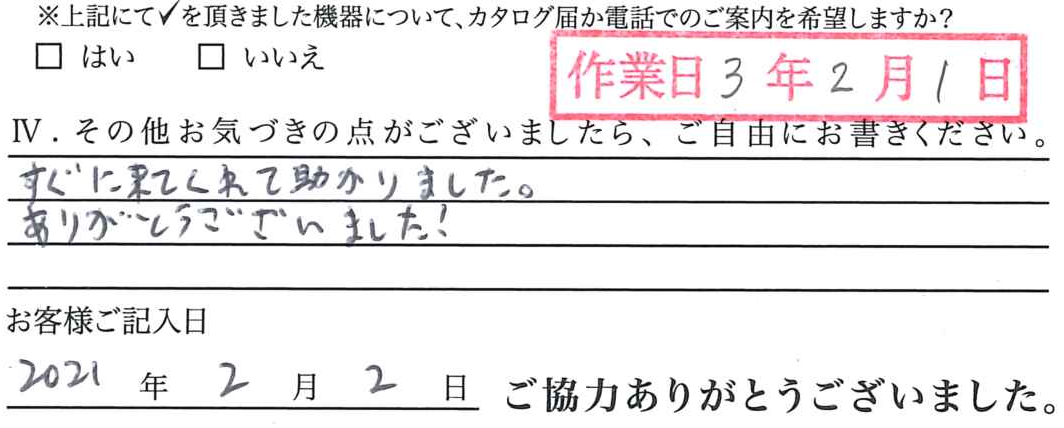 ※上記にて✓を頂きました機器について、カタログ届か電話でのご案内を希望しますか？
□ はい □ いいえ
作業日 3 年 2 月 1 日
Ⅳ．その他お気づきの点がございましたら、ご自由にお書きください。
すぐに来てくれて助かりました。
ありがとうございました！
お客様ご記入日
2021 年 2 月 2 日 ご協力ありがとうございました。